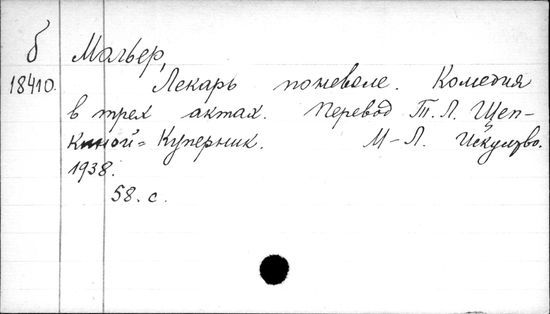 б Мольер,
18410. Лекарь поневоле. Комедия
в трех актах. Перевод Т. Л. Щеп-
киной-Куперник. М-Л. Искусство.
1938.
58. с.